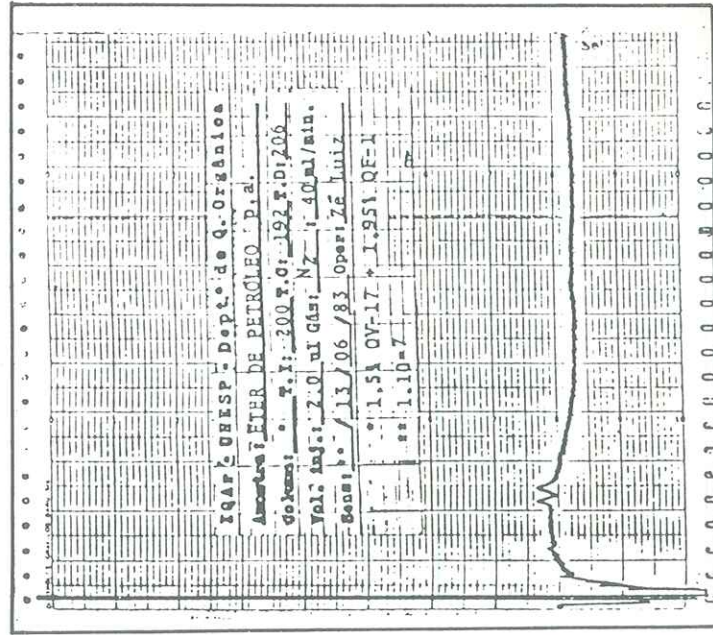 IQAr - UNESP - Dept.º de Q. Orgânica
Amostra: ÉTER DE PETRÓLEO p.a.
Coluna: * T.I: 200 T.C: 192 T.D: 206
Vol. Inj.: 2.0 ul Gás: N2 : 40 ml/min.
Sens: ** / 13 / 06 / 83 Oper: Zé Luiz
* 1.5% OV-17 + 1.95% QF-1
** 1.10-7